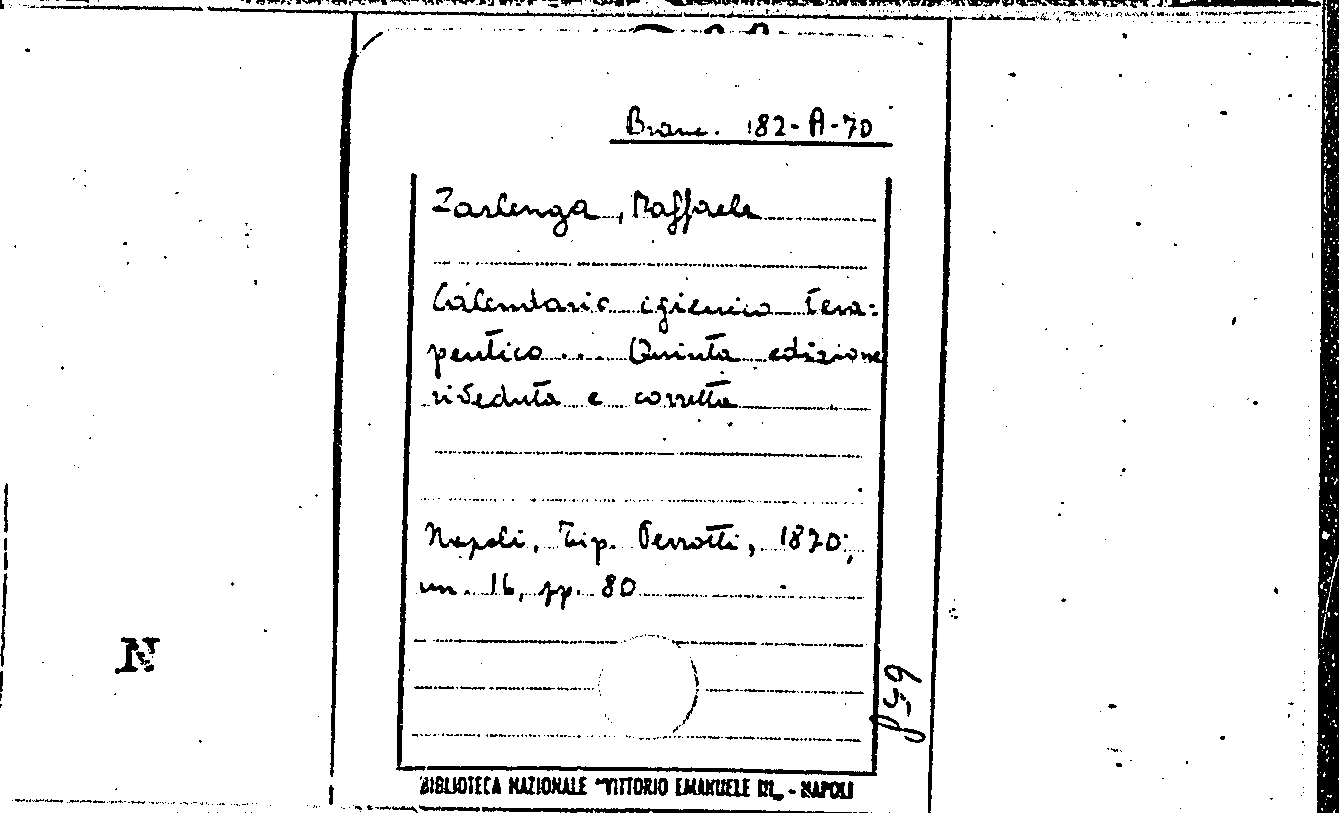 Branc. 182-A-70
Zarlenga, Raffaele
Calendario igienico tera=
peutico... Quinta edizione
riveduta e corretta
Napoli, Tip. Perrotti, 1870;
in. 16, pp. 80
N
BIBLIOTECA NAZIONALE "VITTORIO EMANUELE III„ - NAPOLI